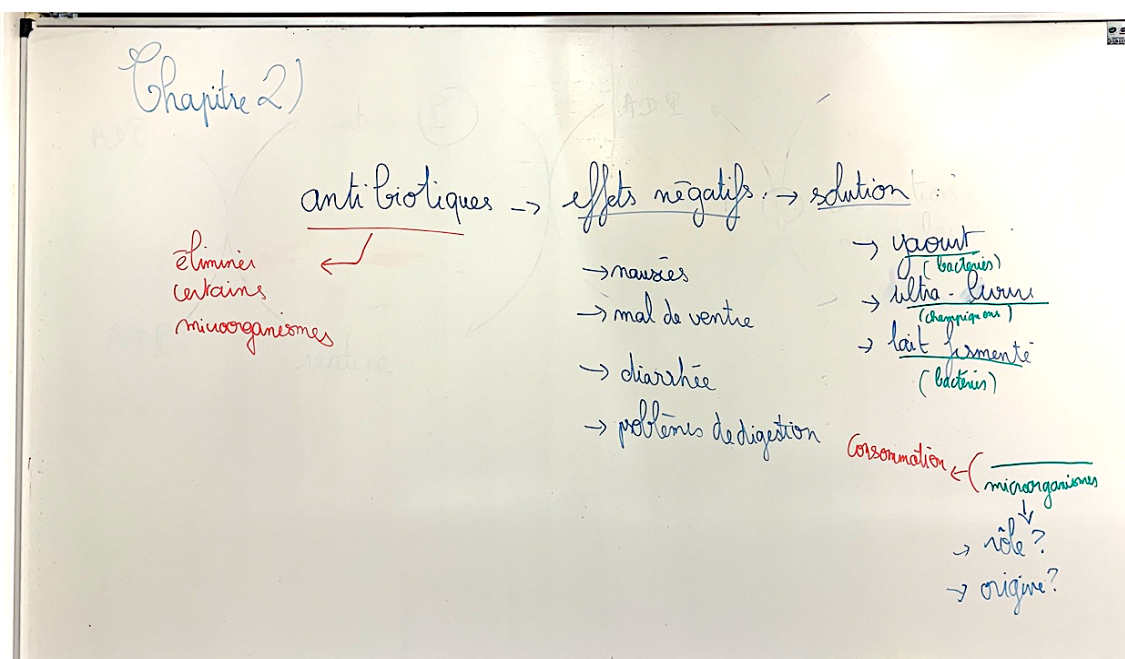 Chapitre 2)
antibiotiques → effets négatifs : → solution :
éliminer
certains
microorganismes
→ nausées
→ mal de ventre
→ diarrhée
→ problèmes de digestion
→ yaourt
(bactéries)
→ ultra-levure
(champignons)
→ lait fermenté
(bactéries)
Consommation ← (
microorganismes
→ rôle ?
→ origine ?